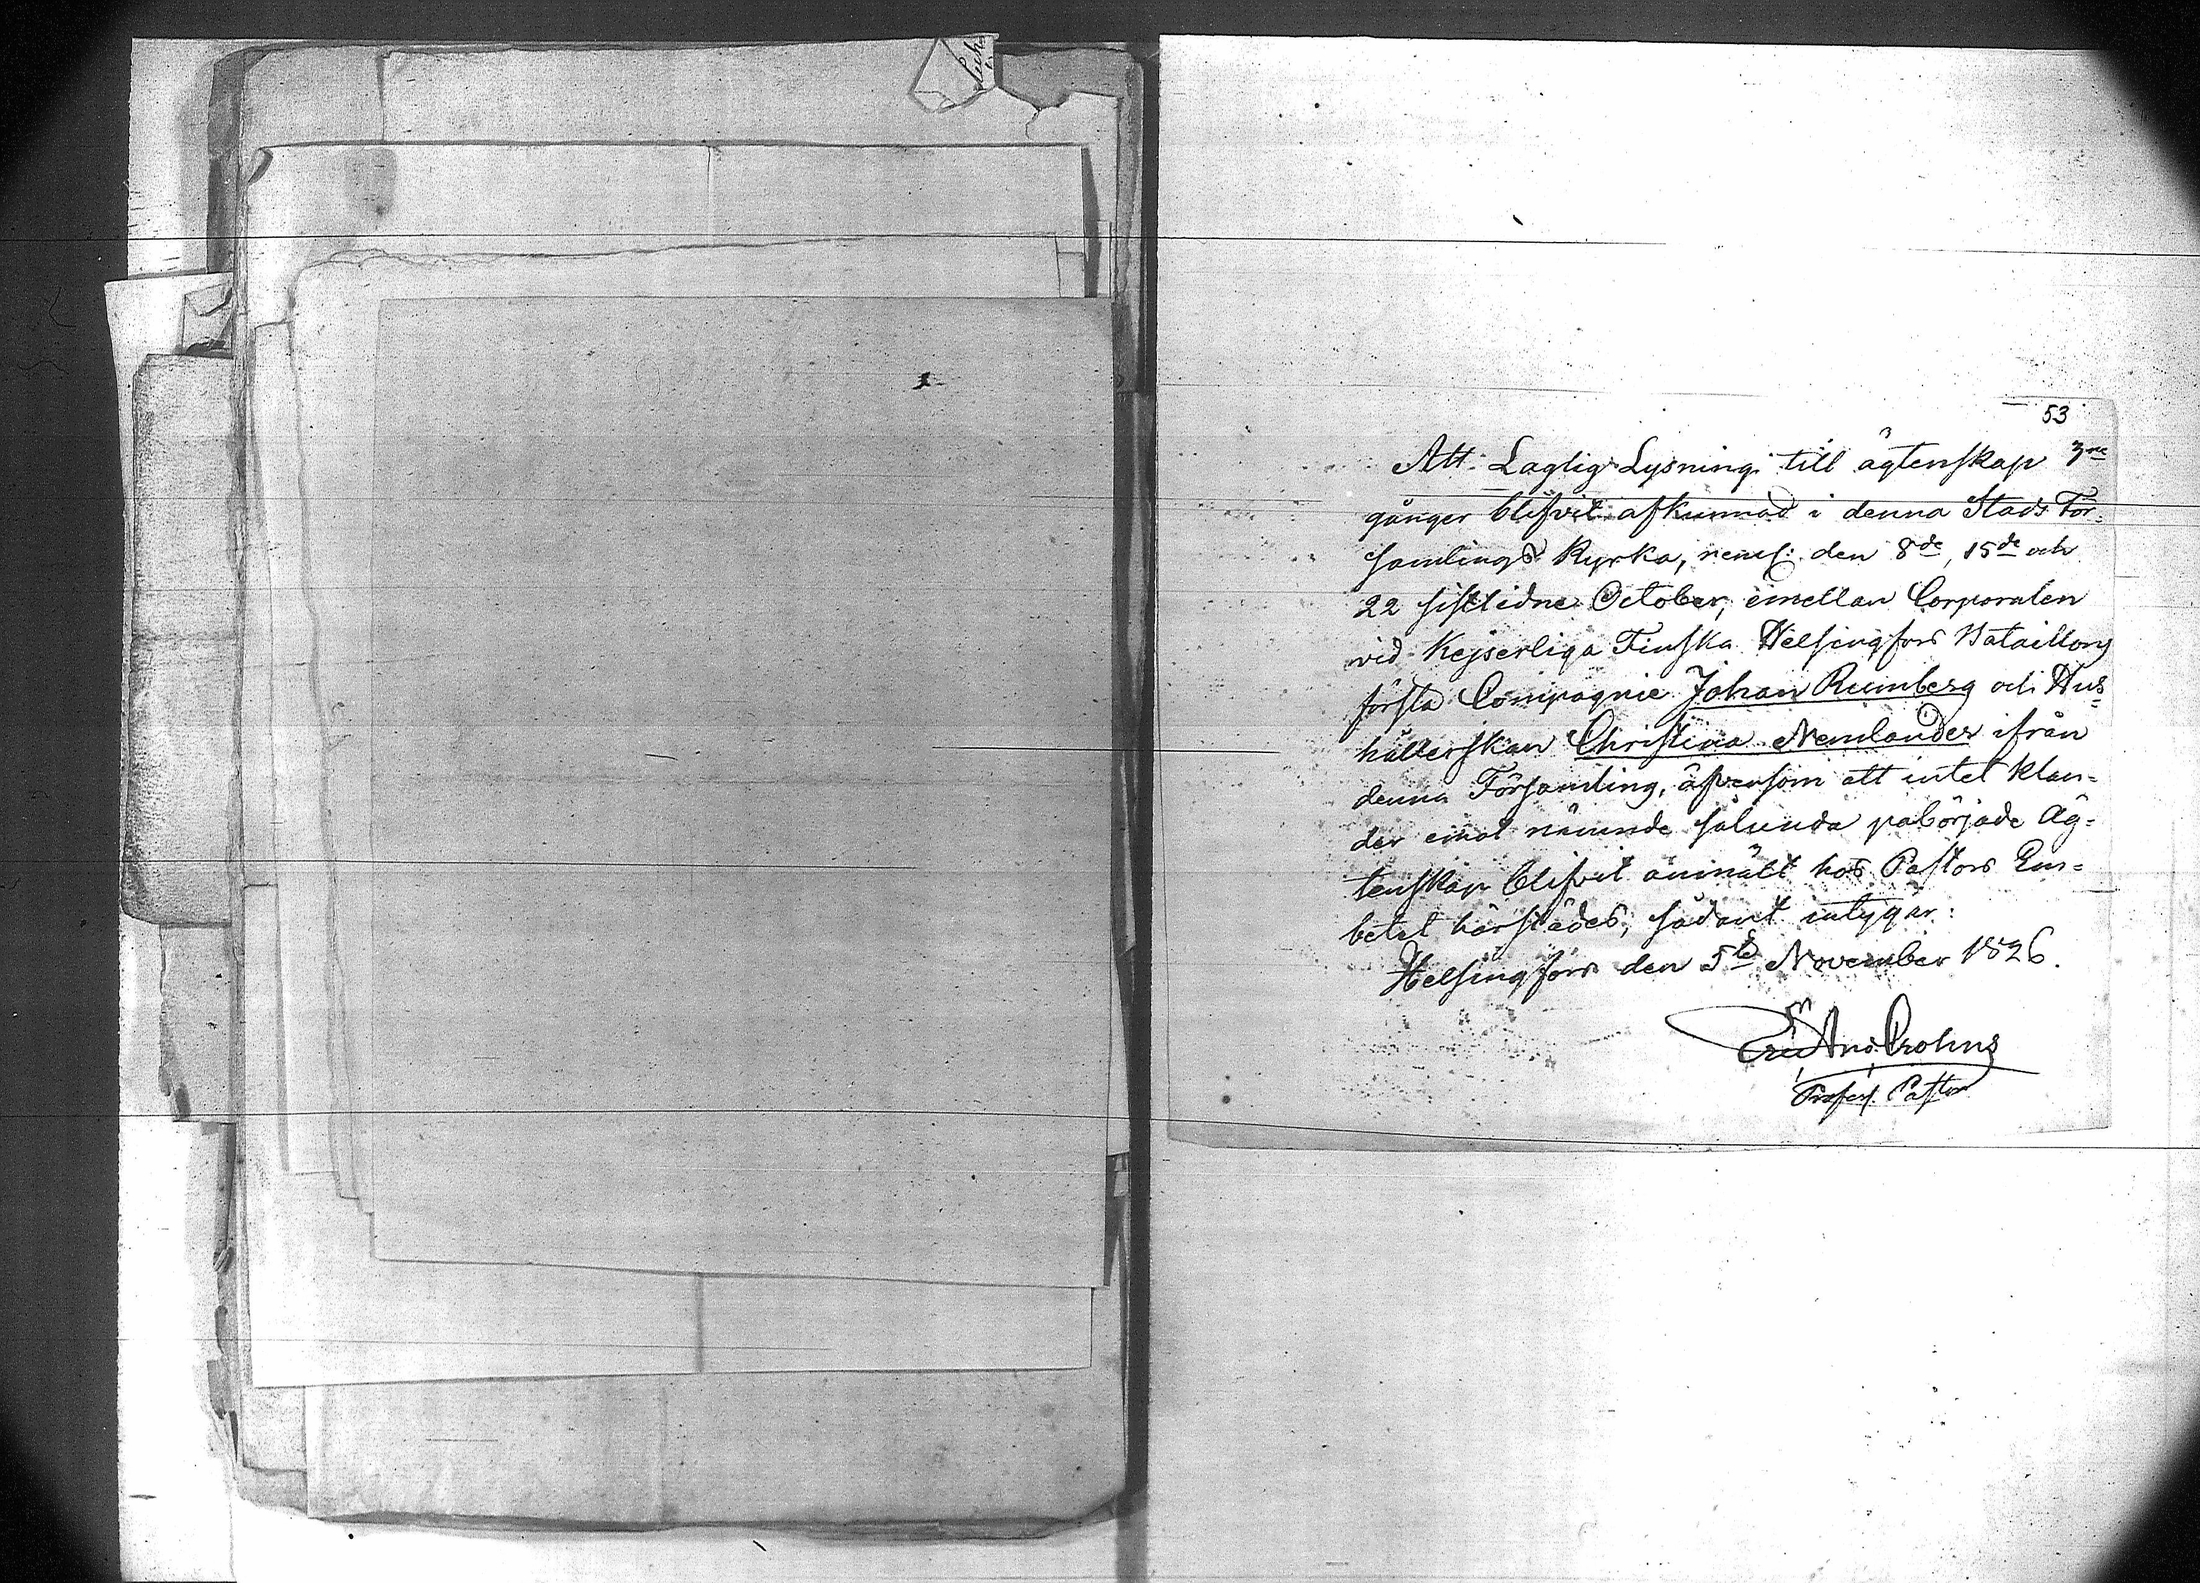 53
Att Laglig Lysning till ägtenskap 3ne
gånger blifvit afkunnad i denna Stads För=
samlings Kyrka, neml: den 8de, 15de och
22 sistlidne October, emellan Corporalen
vid Kejserliga Finska Helsingfors Bataillons
första Compagnie Johan Rumberg och Hus=
hållerskan Christina Nemlander ifrån
denna Församling, äfvensom att intet klan=
der emot nämnde sålunda påbörjade Äg=
tenskap blifvit anmält hos Pastors Em=
betet härstädes, sådant intygar:
Helsingfors den 5te November 1826.
Crohns
Pastor